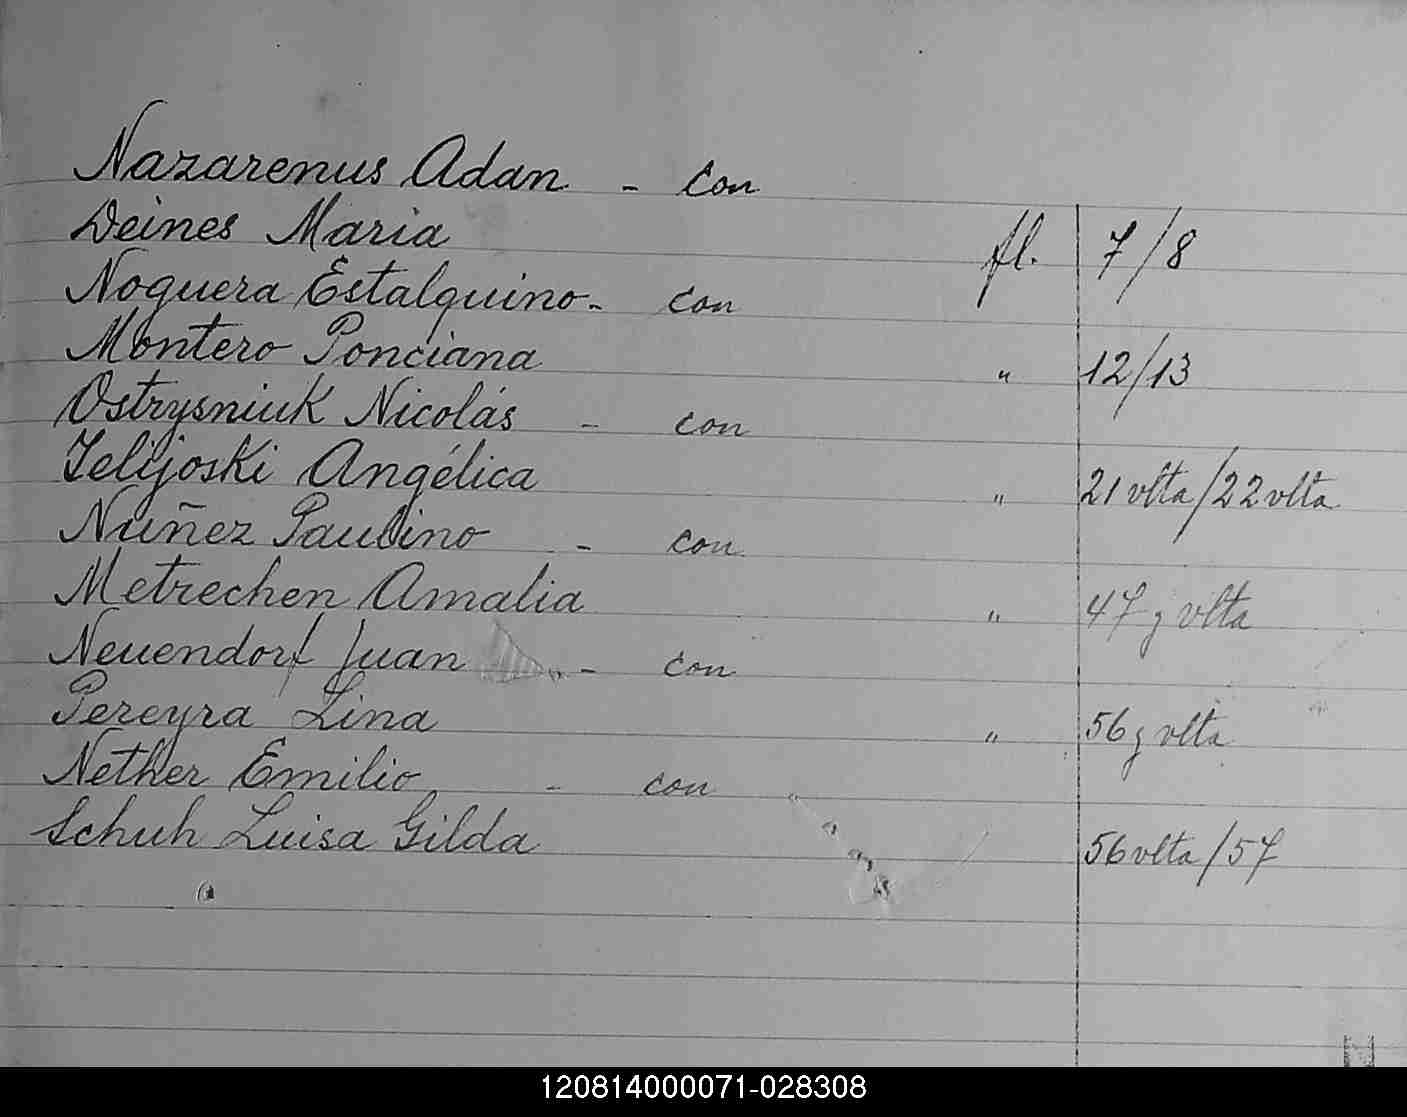 Nazarenus Adan - con
Deines Maria fl. 7/8
Noguera Estalquino - con
Montero Ponciana " 12/13
Ostrysniuk Nicolás - con
Angélica " 21 vlta/22 vlta
Nuñez Paulino - con
Metrechen Amalia " 47 y vlta
Neuendorf Juan - con
Pereyra Lina " 56 y vlta
Nether Emilio - con
Schuh Luisa Gilda 56 vlta/57
120814000071-028308